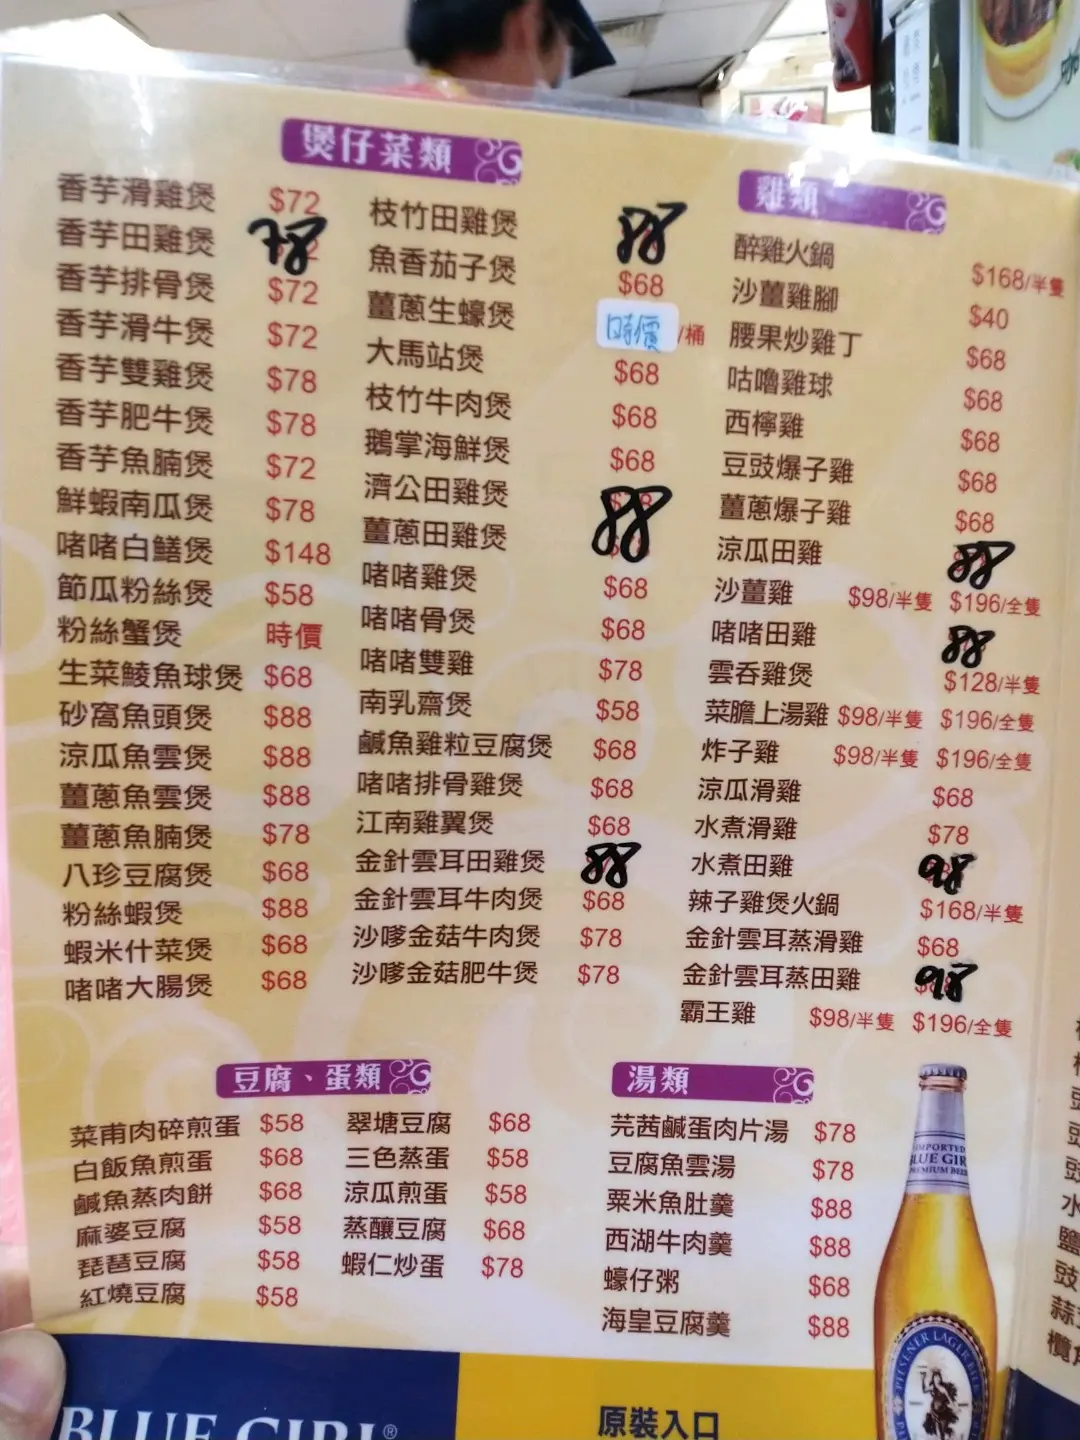 煲仔菜類
香芋滑雞煲 $72
香芋田雞煲 78
香芋排骨煲 $72
香芋滑牛煲 $72
香芋雙雞煲 $78
香芋肥牛煲 $78
香芋魚腩煲 $72
鮮蝦南瓜煲 $78
啫啫白鱔煲 $148
節瓜粉絲煲 $58
粉絲蟹煲 時價
生菜鯪魚球煲 $68
砂窩魚頭煲 $88
涼瓜魚雲煲 $88
薑蔥魚雲煲 $88
薑蔥魚腩煲 $78
八珍豆腐煲 $68
粉絲蝦煲 $88
蝦米什菜煲 $68
啫啫大腸煲 $68
枝竹田雞煲 88
魚香茄子煲 $68
薑蔥生蠔煲 時價/桶
大馬站煲 $68
枝竹牛肉煲 $68
鵝掌海鮮煲 $68
濟公田雞煲 88
薑蔥田雞煲
啫啫雞煲 $68
啫啫骨煲 $68
啫啫雙雞 $78
南乳齋煲 $58
鹹魚雞粒豆腐煲 $68
啫啫排骨雞煲 $68
江南雞翼煲 $68
金針雲耳田雞煲 88
金針雲耳牛肉煲 $68
沙嗲金菇牛肉煲 $78
沙嗲金菇肥牛煲 $78
雞類
醉雞火鍋 $168/半隻
沙薑雞腳 $40
腰果炒雞丁 $68
咕嚕雞球 $68
西檸雞 $68
豆豉爆子雞 $68
薑蔥爆子雞 $68
涼瓜田雞 88
沙薑雞 $98/半隻 $196/全隻
啫啫田雞 88
雲吞雞煲 $128/半隻
菜膽上湯雞 $98/半隻 $196/全隻
炸子雞 $98/半隻 $196/全隻
涼瓜滑雞 $68
水煮滑雞 $78
水煮田雞 98
辣子雞煲火鍋 $168/半隻
金針雲耳蒸滑雞 $68
金針雲耳蒸田雞 98
霸王雞 $98/半隻 $196/全隻
豆腐、蛋類
菜甫肉碎煎蛋 $58
白飯魚煎蛋 $68
鹹魚蒸肉餅 $68
麻婆豆腐 $58
琵琶豆腐 $58
紅燒豆腐 $58
翠塘豆腐 $68
三色蒸蛋 $58
涼瓜煎蛋 $58
蒸釀豆腐 $68
蝦仁炒蛋 $78
湯類
芫茜鹹蛋肉片湯 $78
豆腐魚雲湯 $78
粟米魚肚羹 $88
西湖牛肉羹 $88
蠔仔粥 $68
海皇豆腐羹 $88
IMPORTED
BLUE GIRL
PREMIUM BEER
PILSENER LAGER BEER
BLUE GIRL®
原裝入口